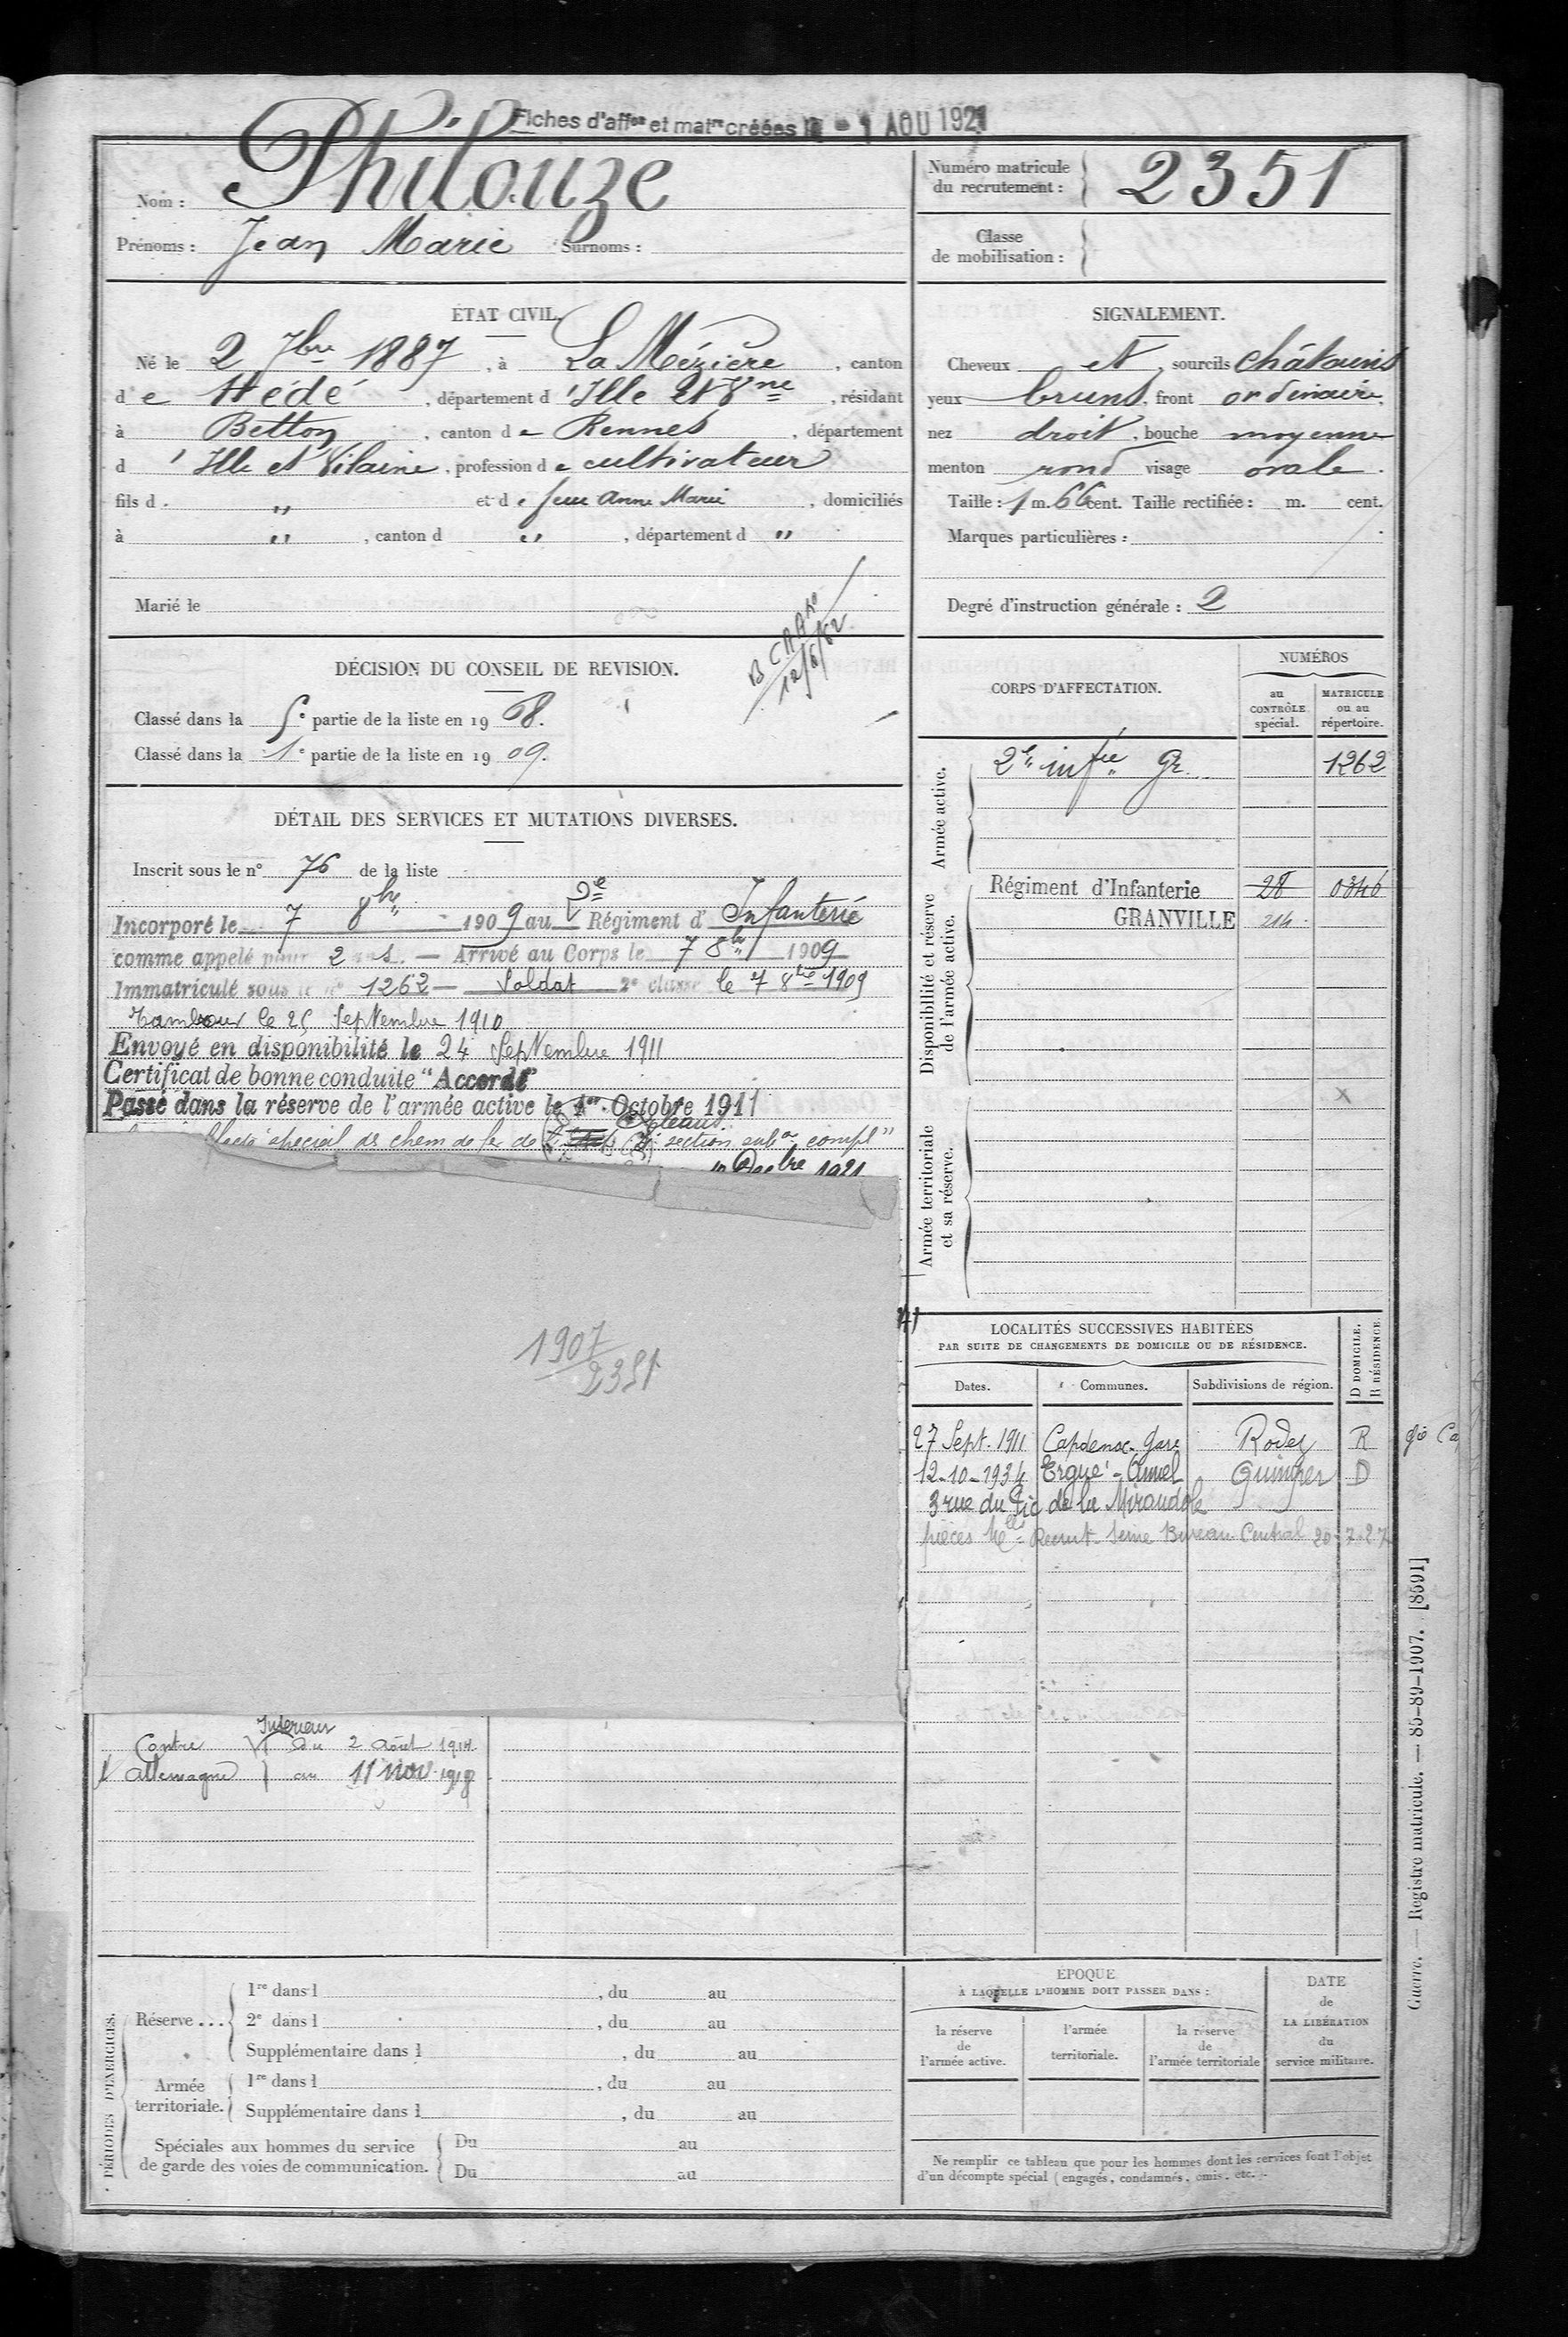 Fiches d'affon et matre créées le - 1 AOU 1921
Nom : Philouze
Prénoms : Jean Marie Surnoms :
Numéro matricule
du recrutement : 2351
Classe
de mobilisation :
ÉTAT CIVIL.
Né le 2 7bre 1887, à La Mézière, canton
de Hédé, département d'Ille et Vne, résidant
à Betton, canton de Rennes, département
d'Ille et Vilaine, profession de cultivateur
fils d. " et de feue Anne Marie, domiciliés
à ", canton d ", département d "
Marié le
12/6/62
SIGNALEMENT.
Cheveux et sourcils châtains
yeux bruns, front ordinaire,
nez droit, bouche moyenne
menton rond visage ovale.
Taille : 1 m. 66 cent. Taille rectifiée : m. cent.
Marques particulières :
Degré d'instruction générale : 2
DÉCISION DU CONSEIL DE REVISION.
Classé dans la 5e partie de la liste en 1908.
Classé dans la 1e partie de la liste en 1909.
DÉTAIL DES SERVICES ET MUTATIONS DIVERSES.
Inscrit sous le n° 76 de la liste
Incorporé le 7 8bre 1909 au 2e Régiment d'Infanterie
comme appelé pour 2 ans. — Arrivé au Corps le 7 8bre 1909
Immatriculé sous le n° 1262 — Soldat 2e classe le 7 8bre 1909
Tambour le 25 Septembre 1910
Envoyé en disponibilité le 24 Septembre 1911
Certificat de bonne conduite "Accordé"
Passé dans la réserve de l'armée active le 1er Octobre 1911
Orléans
spécial des chem de fer de section subon compl"
1921
1907
2351
Intérieur
Contre du 2 Août 1914
l'Allemagne au 11 nov 1918
CORPS D'AFFECTATION.
NUMÉROS
au
CONTRÔLE
spécial.
MATRICULE
ou au
répertoire.
Armée active.
2e infie Gr. 1262
Disponibilité et réserve
de l'armée active.
Régiment d'Infanterie 28 0346
GRANVILLE 214
x
Armée territoriale
et sa réserve.
LOCALITÉS SUCCESSIVES HABITÉES
PAR SUITE DE CHANGEMENTS DE DOMICILE OU DE RÉSIDENCE.
D DOMICILE.
R RÉSIDENCE.
Dates. Communes. Subdivisions de région.
27 Sept. 1911 Capdenac-Gare Rodez R
12-10-1934 Ergué-Armel Quimper D
3 rue du Pic de la Mirandole
pièces Mlles Recrut. Seine Bureau Central 20-7-27
Guerre. — Registre matricule. — 85-89-1907. [8591]
PÉRIODES D'EXERCICES.
Réserve...
1re dans l , du au
2e dans l , du au
Supplémentaire dans l , du au
Armée
territoriale.
1re dans l , du au
Supplémentaire dans l , du au
Spéciales aux hommes du service
de garde des voies de communication.
Du au
Du au
ÉPOQUE
À LAQUELLE L'HOMME DOIT PASSER DANS :
la réserve
de
l'armée active.
l'armée
territoriale.
la réserve
de
l'armée territoriale
DATE
de
LA LIBÉRATION
du
service militaire.
Ne remplir ce tableau que pour les hommes dont les services font l'objet
d'un décompte spécial (engagés, condamnés, omis, etc.).